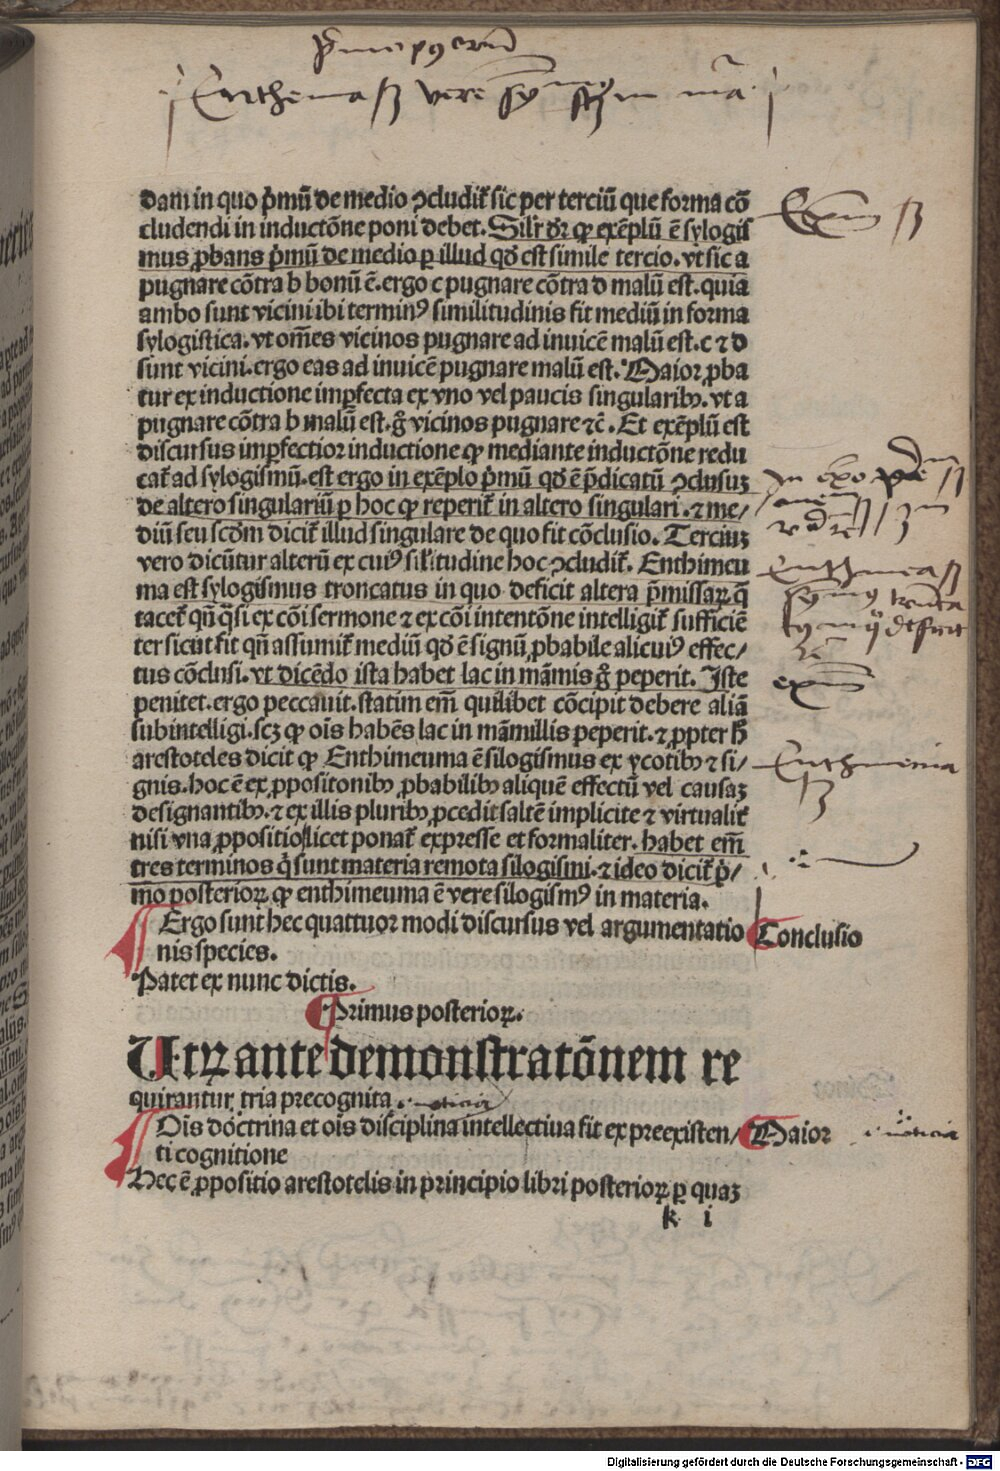 dam in quo p̄mū de medio ꝯcludit̄ sic per terciū que forma cō
cludendi in inductōne poni debet. Silr̄ dr̄ qꝫ exēplū ē sylogis
mus ꝓbans p̄mū de medio ꝑ illud qd̄ est simile tercio. vt sic a
pugnare cōtra b bonū ē. ergo c pugnare cōtra d malū est. quia
ambo sunt vicini ibi terminꝰ similitudinis fit mediū in forma
sylogistica. vt om̄es vicinos pugnare ad inuicē malū est. c ⁊ d
sunt vicini. ergo eas ad inuicē pugnare malū est. Maior ꝓba
tur ex inductione imꝑfecta ex vno vel paucis singularibꝫ. vt a
pugnare cōtra b malū est. g̊ vicinos pugnare ⁊c̄. Et exēplū est
discursus imꝑfectior inductione qꝫ mediante inductōne redu
cat̄ ad sylogismū. est ergo in exēplo p̄mū qd̄ ē p̄dicatū ꝯclusuꝫ
de altero singulariū ꝑ hoc qꝫ reperit̄ in altero singulari. ⁊ me/
diū seu scd̄m dicit̄ illud singulare de quo fit cōclusio. Terciuꝫ
vero dicūtur alterū ex cuiꝰ sil̄itudine hoc ꝯcludit̄. Enthimeu
ma est sylogismus troncatus in quo deficit altera p̄missaꝝ q̄
tacet̄ qn̄ q̄si ex cōi sermone ⁊ ex cōi intentōne intelligit̄ sufficiē
ter sicut fit qn̄ assumit̄ mediū qd̄ ē signū ꝓbabile alicuiꝰ effec/
tus cōclusi. vt dicēdo ista habet lac in mām̄is g̊ peperit. Iste
penitet. ergo peccauit. statim em̄ quilibet cōcipit debere aliā
subintelligi. scꝫ qꝫ oīs habēs lac in mām̄illis peperit. ⁊ ꝓpter h̄
arestoteles dicit qꝫ Enthimeuma ē silogismus ex ycotibꝫ ⁊ si/
gnis. hoc ē ex ꝓpositonibꝫ ꝓbabilibꝫ aliquē effectū vel causaꝫ
designantibꝫ. ⁊ ex illis pluribꝫ ꝓcedit saltē implicite ⁊ virtualit̄
nisi vna ꝓpositio licet ponat̄ expresse et formaliter. habet em̄
tres terminos q̄ sunt materia remota silogismi. ⁊ ideo dicit̄ p̄/
mo posterioꝝ qꝫ enthimeuma ē vere silogismꝰ in materia.
Ergo sunt hec quattuor modi discursus vel argumentatio Conclusio
nis species.
Patet ex nunc dictis.
Primus posterioꝝ.
Utꝝ ante demonstratōnem re
quirantur tria precognita.
Oīs doctrina et oīs disciplina intellectiua fit ex preexisten/ Maior
ti cognitione
Hec ē ꝓpositio arestotelis in principio libri posterioꝝ ꝑ quaꝫ
k i
Digitalisierung gefördert durch die Deutsche Forschungsgemeinschaft - DFG